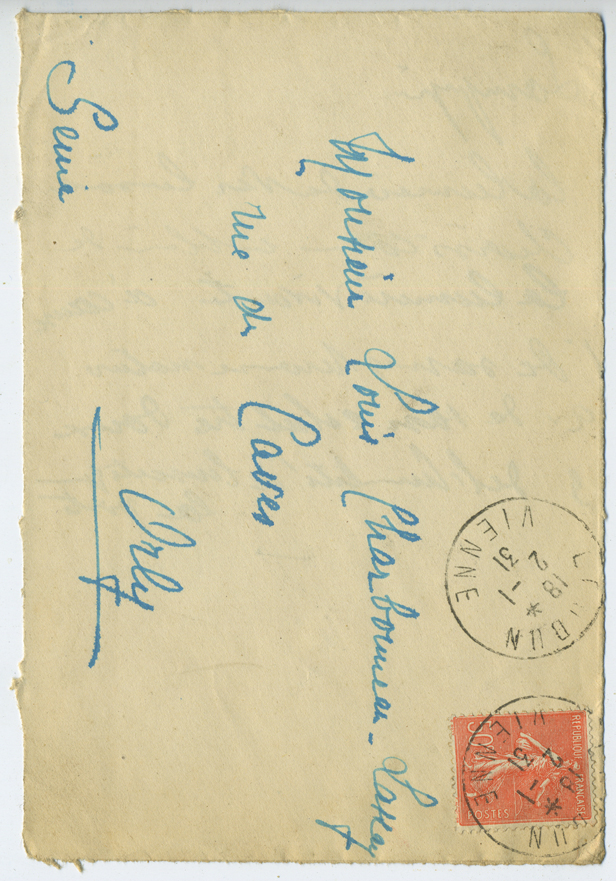 Monsieur Louis Charbonneau-Lassay
rue des Caves
Orly
Seine
LOUDUN
18 - 1
2
31
VIENNE
REPUBLIQUE FRANÇAISE
50
POSTES
18 - 1
2
31
VIENNE